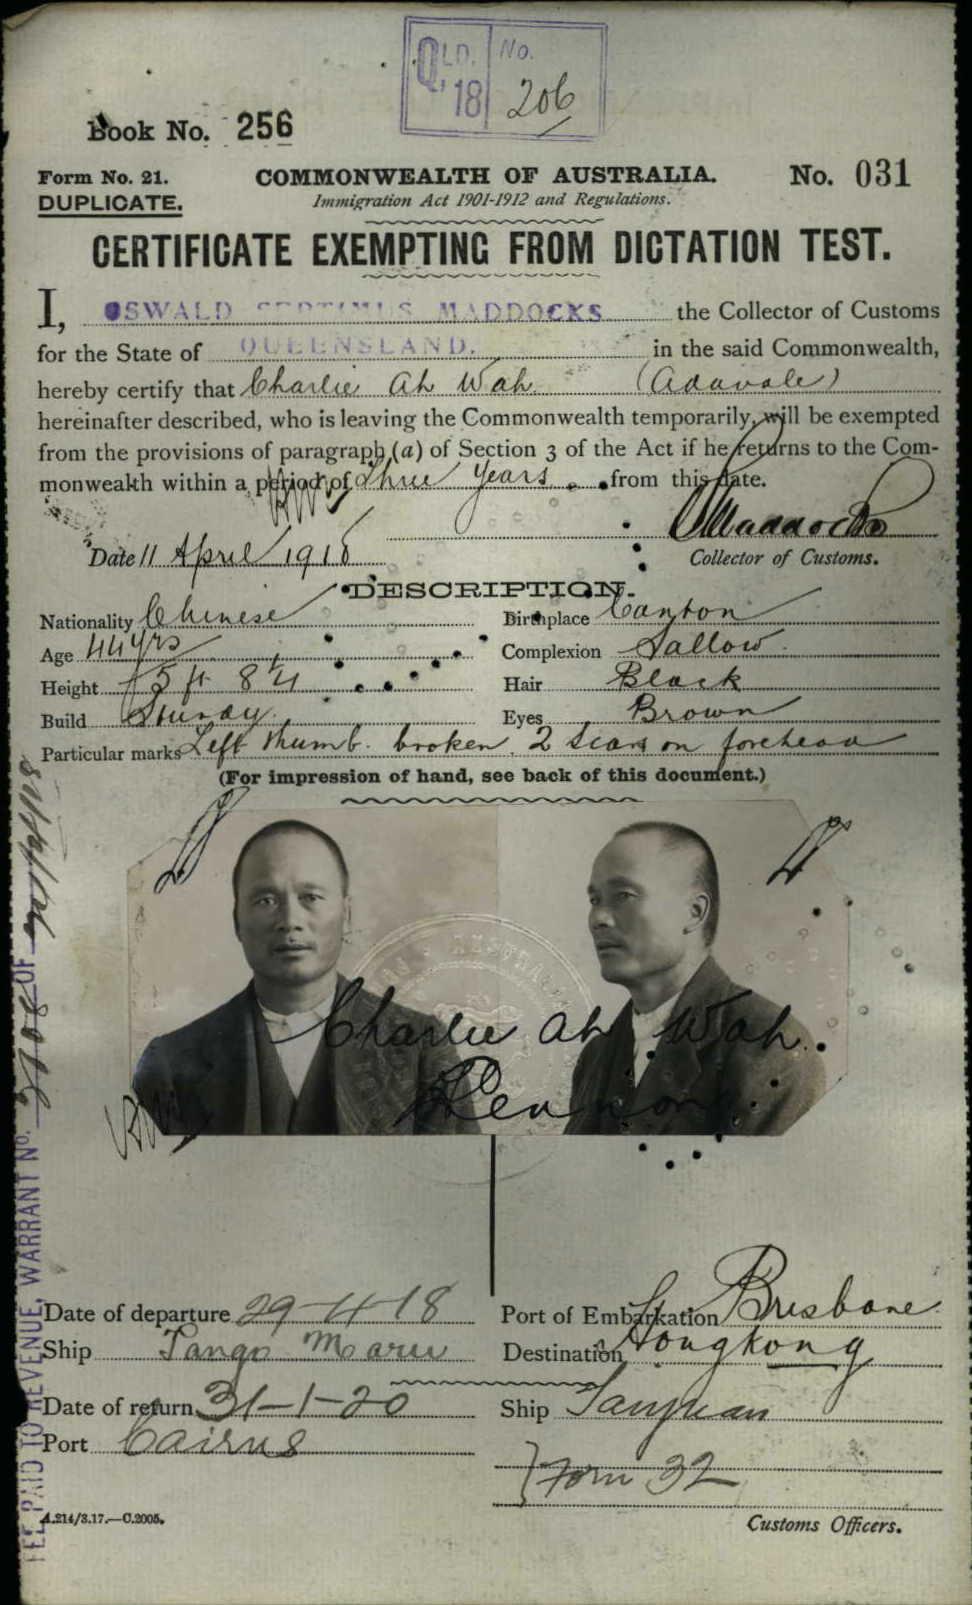 QLD. No.
18 206
Book No. 256
Form No. 21. COMMONWEALTH OF AUSTRALIA. No. 031
DUPLICATE. Immigration Act 1901-1912 and Regulations.
CERTIFICATE EXEMPTING FROM DICTATION TEST.
I, OSWALD SEPTIMUS MADDOCKS the Collector of Customs
for the State of QUEENSLAND. in the said Commonwealth,
hereby certify that Charlie Ah Wah. (Adavale)
hereinafter described, who is leaving the Commonwealth temporarily, will be exempted
from the provisions of paragraph (a) of Section 3 of the Act if he returns to the Com-
monwealth within a period of Three Years from this date.
Maddocks
Date 11 April 1918 Collector of Customs.
DESCRIPTION.
Nationality Chinese Birthplace Canton
Age 44 yrs Complexion Sallow.
Height 5 ft 8¼ Hair Black
Build Sturdy. Eyes Brown
Particular marks Left thumb. broken. 2 Scars on forehead
(For impression of hand, see back of this document.)
Charlie Ah Wah.
Date of departure 29-4-18 Port of Embarkation Brisbane
Ship Tango Maru Destination Hongkong
Date of return 31-1-20 Ship Taiyuan
Port Cairns
Form 32
A.214/3.17.—C.2005. Customs Officers.
FEE PAID TO REVENUE, WARRANT No. OF